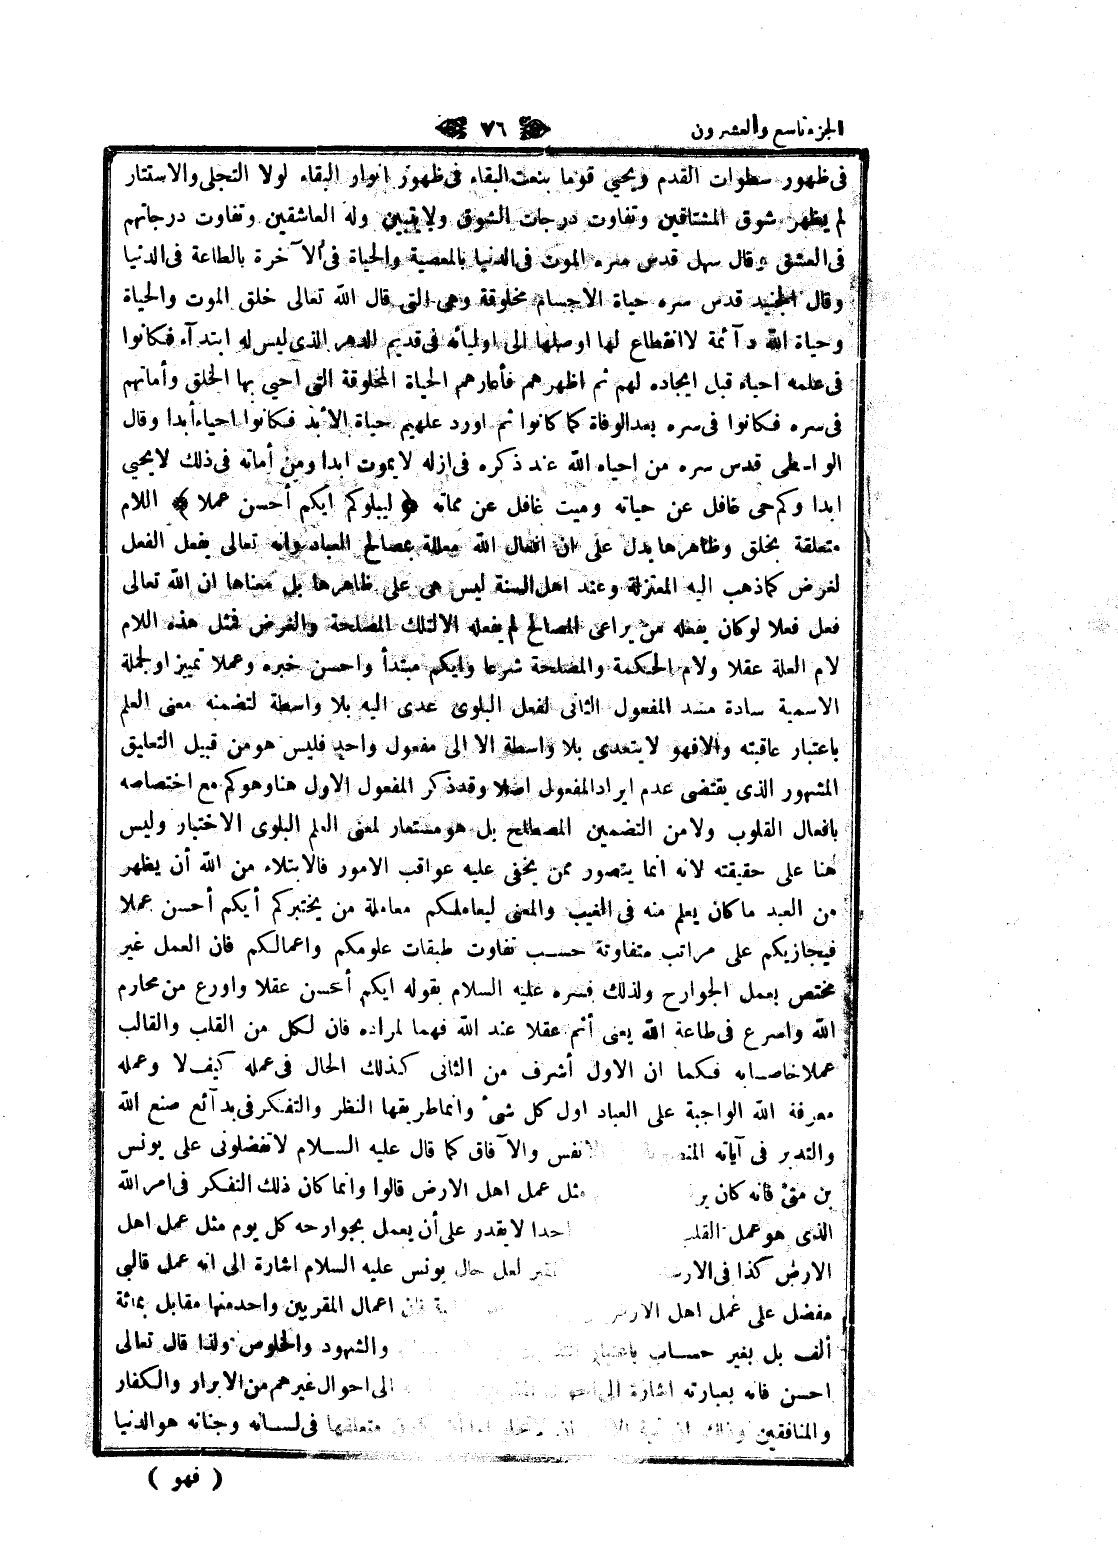 الجزء تاسع والعشرون ٧٦
فى ظهور سطوات القدم ويحيى قوما بنعت البقاء فى ظهور انوار البقاء لولا التجلى والاستتار
لم يظهر شوق المشتاقين وتفاوت درجات الشوق ولا يتبين وله العاشقين وتفاوت درجاتهم
فى العشق وقال سهل قدس سره الموت فى الدنيا بالمعصية والحياة فى الآخرة بالطاعة فى الدنيا
وقال الجنيد قدس سره حياة الاجسام مخلوقة وهى التى قال الله تعالى خلق الموت والحياة
وحياة الله دآئمة لاانقطاع لها اوصلها الى اوليائه فى قديم الدهر الذى ليس له ابتدآء فكانوا
فى علمه احياء قبل ايجاده لهم ثم اظهرهم فأعارهم الحياة المخلوقة التى احيى بها الخلق وأماتهم
فى سره فكانوا فى سره بعد الوفاة كما كانوا ثم اورد عليهم حياة الأبد فكانوا احياء أبدا وقال
الواسطى قدس سره من احياه الله عند ذكره فى ازله لا يموت ابدا ومن أماته فى ذلك لا يحيى
ابدا وكم حى غافل عن حياته وميت غافل عن مماته ﴿ ليبلوكم ايكم أحسن عملا ﴾ اللام
متعلقة بخلق وظاهرها يدل على ان افعال الله معللة بمصالح العباد وانه تعالى يفعل الفعل
لغرض كما ذهب اليه المعتزلة وعند اهل السنة ليس هى على ظاهرها بل معناها ان الله تعالى
فعل فعلا لو كان يفعله من يراعى المصالح لم يفعله الا لتلك المصلحة والغرض فمثل هذه اللام
لام العلة عقلا ولام الحكمة والمصلحة شرعا وايكم مبتدأ واحسن خبره وعملا تمييز اولجملة
الاسمية سادة مسد المفعول الثانى لفعل البلوى عدى اليه بلا واسطة لتضمنه معنى العلم
باعتبار عاقبته والا فهو لا يتعدى بلا واسطة الا الى مفعول واحد فليس هو من قبيل التعليق
المشهور الذى يقتضى عدم ايراد المفعول اصلا وقد ذكر المفعول الاول هنا وهو كم مع اختصاصه
بافعال القلوب ولا من التضمين المصطلح بل هو مستعار لمعنى العلم البلوى الاختبار وليس
هنا على حقيقته لانه انما يتصور ممن يخفى عليه عواقب الامور فالابتلاء من الله أن يظهر
من العبد ما كان يعلم منه فى الغيب والمعنى ليعاملكم معاملة من يختبركم أيكم أحسن عملا
فيجازيكم على مراتب متفاوتة حسب تفاوت طبقات علومكم واعمالكم فان العمل غير
مختص بعمل الجوارح ولذلك فسره عليه السلام بقوله ايكم أحسن عقلا واورع من محارم
الله واسرع فى طاعة الله يعنى أتم عقلا عند الله فهما لمراده فان لكل من القلب والقالب
عملا خاصا به فكما ان الاول أشرف من الثانى كذلك الحال فى عمله كيف لا وعمله
معرفة الله الواجبة على العباد اول كل شىء وانما طريقها النظر والتفكر فى بدآئع صنع الله
والتدبر فى آياته الانفس والآفاق كما قال عليه السلام لا تفضلونى على يونس
بن متى فانه كان ير مثل عمل اهل الارض قالوا وانما كان ذلك التفكر فى امر الله
الذى هو عمل القلب احدا لا يقدر على أن يعمل بجوارحه كل يوم مثل عمل اهل
الارض كذا فى الارشاد لعل حال يونس عليه السلام اشارة الى انه عمل قالبى
مفضل على عمل اهل الارض فان اعمال المقربين واحد منها مقابل بمائة
ألف بل بغير حساب باعتبار والشهود والخلوص ولذا قال تعالى
احسن فانه بعبارته اشارة الى احوال الى احوال غيرهم من الابرار والكفار
والمنافقين وذلك ان نية متعلقها فى لسانه وجنانه هو الدنيا
( فهو )